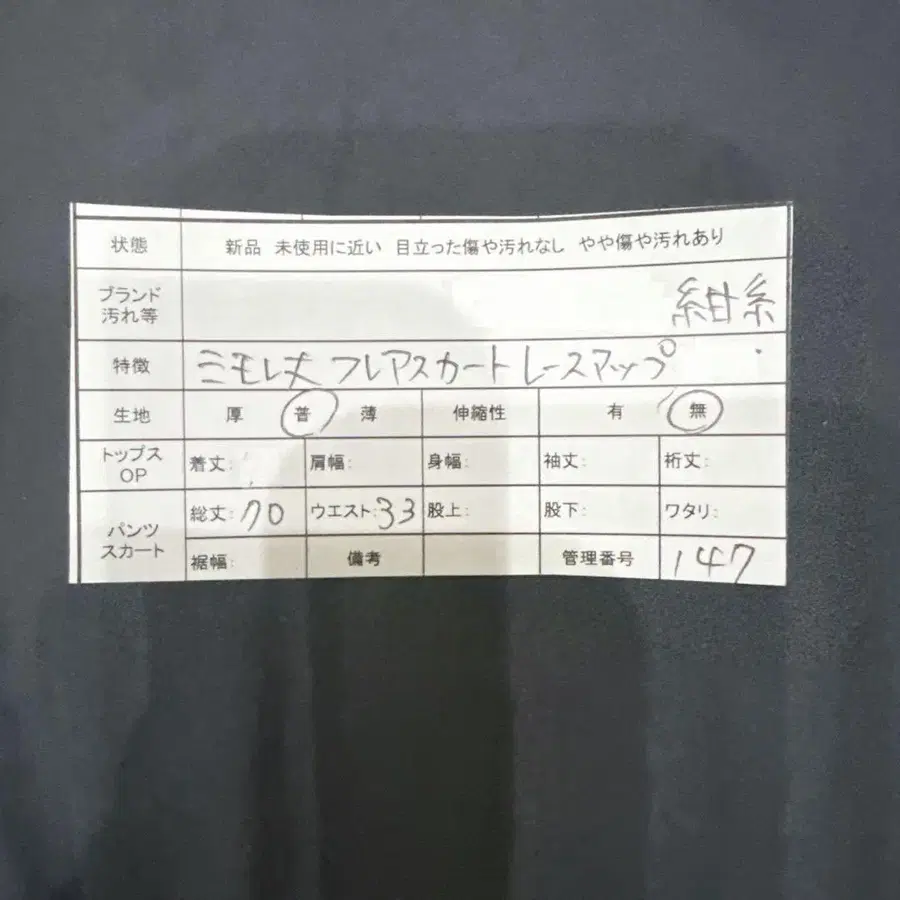 状態 新品 未使用に近い 目立った傷や汚れなし やや傷や汚れあり
ブランド 汚れ等 紺系
特徴 ミモレ丈 フレアスカート レースアップ
生地 厚 普 薄 伸縮性 有 無
トップス OP 着丈: 肩幅: 身幅: 袖丈: 裄丈:
パンツ スカート 総丈: 70 ウエスト: 33 股上: 股下: ワタリ:
裾幅: 備考 管理番号 147